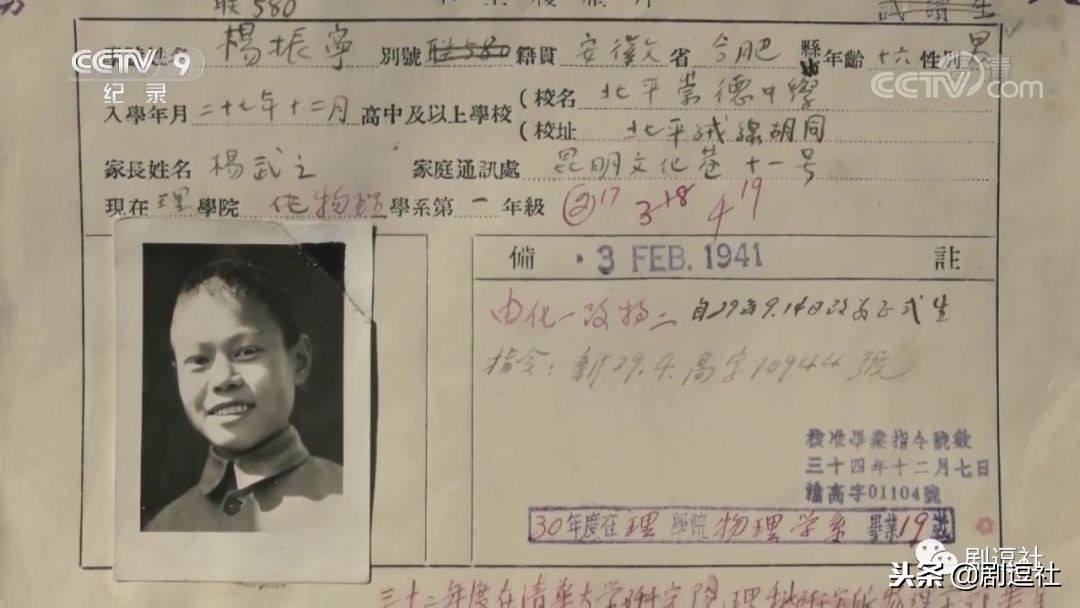 联580
學生姓名 楊振寧 別號 联580 籍貫 安徽 省 合肥 縣市 年齡 十六 性別 男
CCTV-9
纪录
CCTV.com
入學年月 二十七年十二月 高中及以上學校 (校名 北平崇德中學
(校址 北平絨線胡同
家長姓名 楊武之 家庭通訊處 昆明文化巷十一号
現在 理 學院 化 物理 學系第 一 年級 ② 17 3 18 4 19
備 3 FEB. 1941 註
由化一改物二 自29年9.14日改為正式生
指令: 新29.4.高字10944號
核准畢業指令號數
三十四年十二月七日
渝高字01104號
30年度在理學院物理学系畢業19
剧逗社
头条@剧逗社
三十二年度在清華大學研究院理科研究所物理